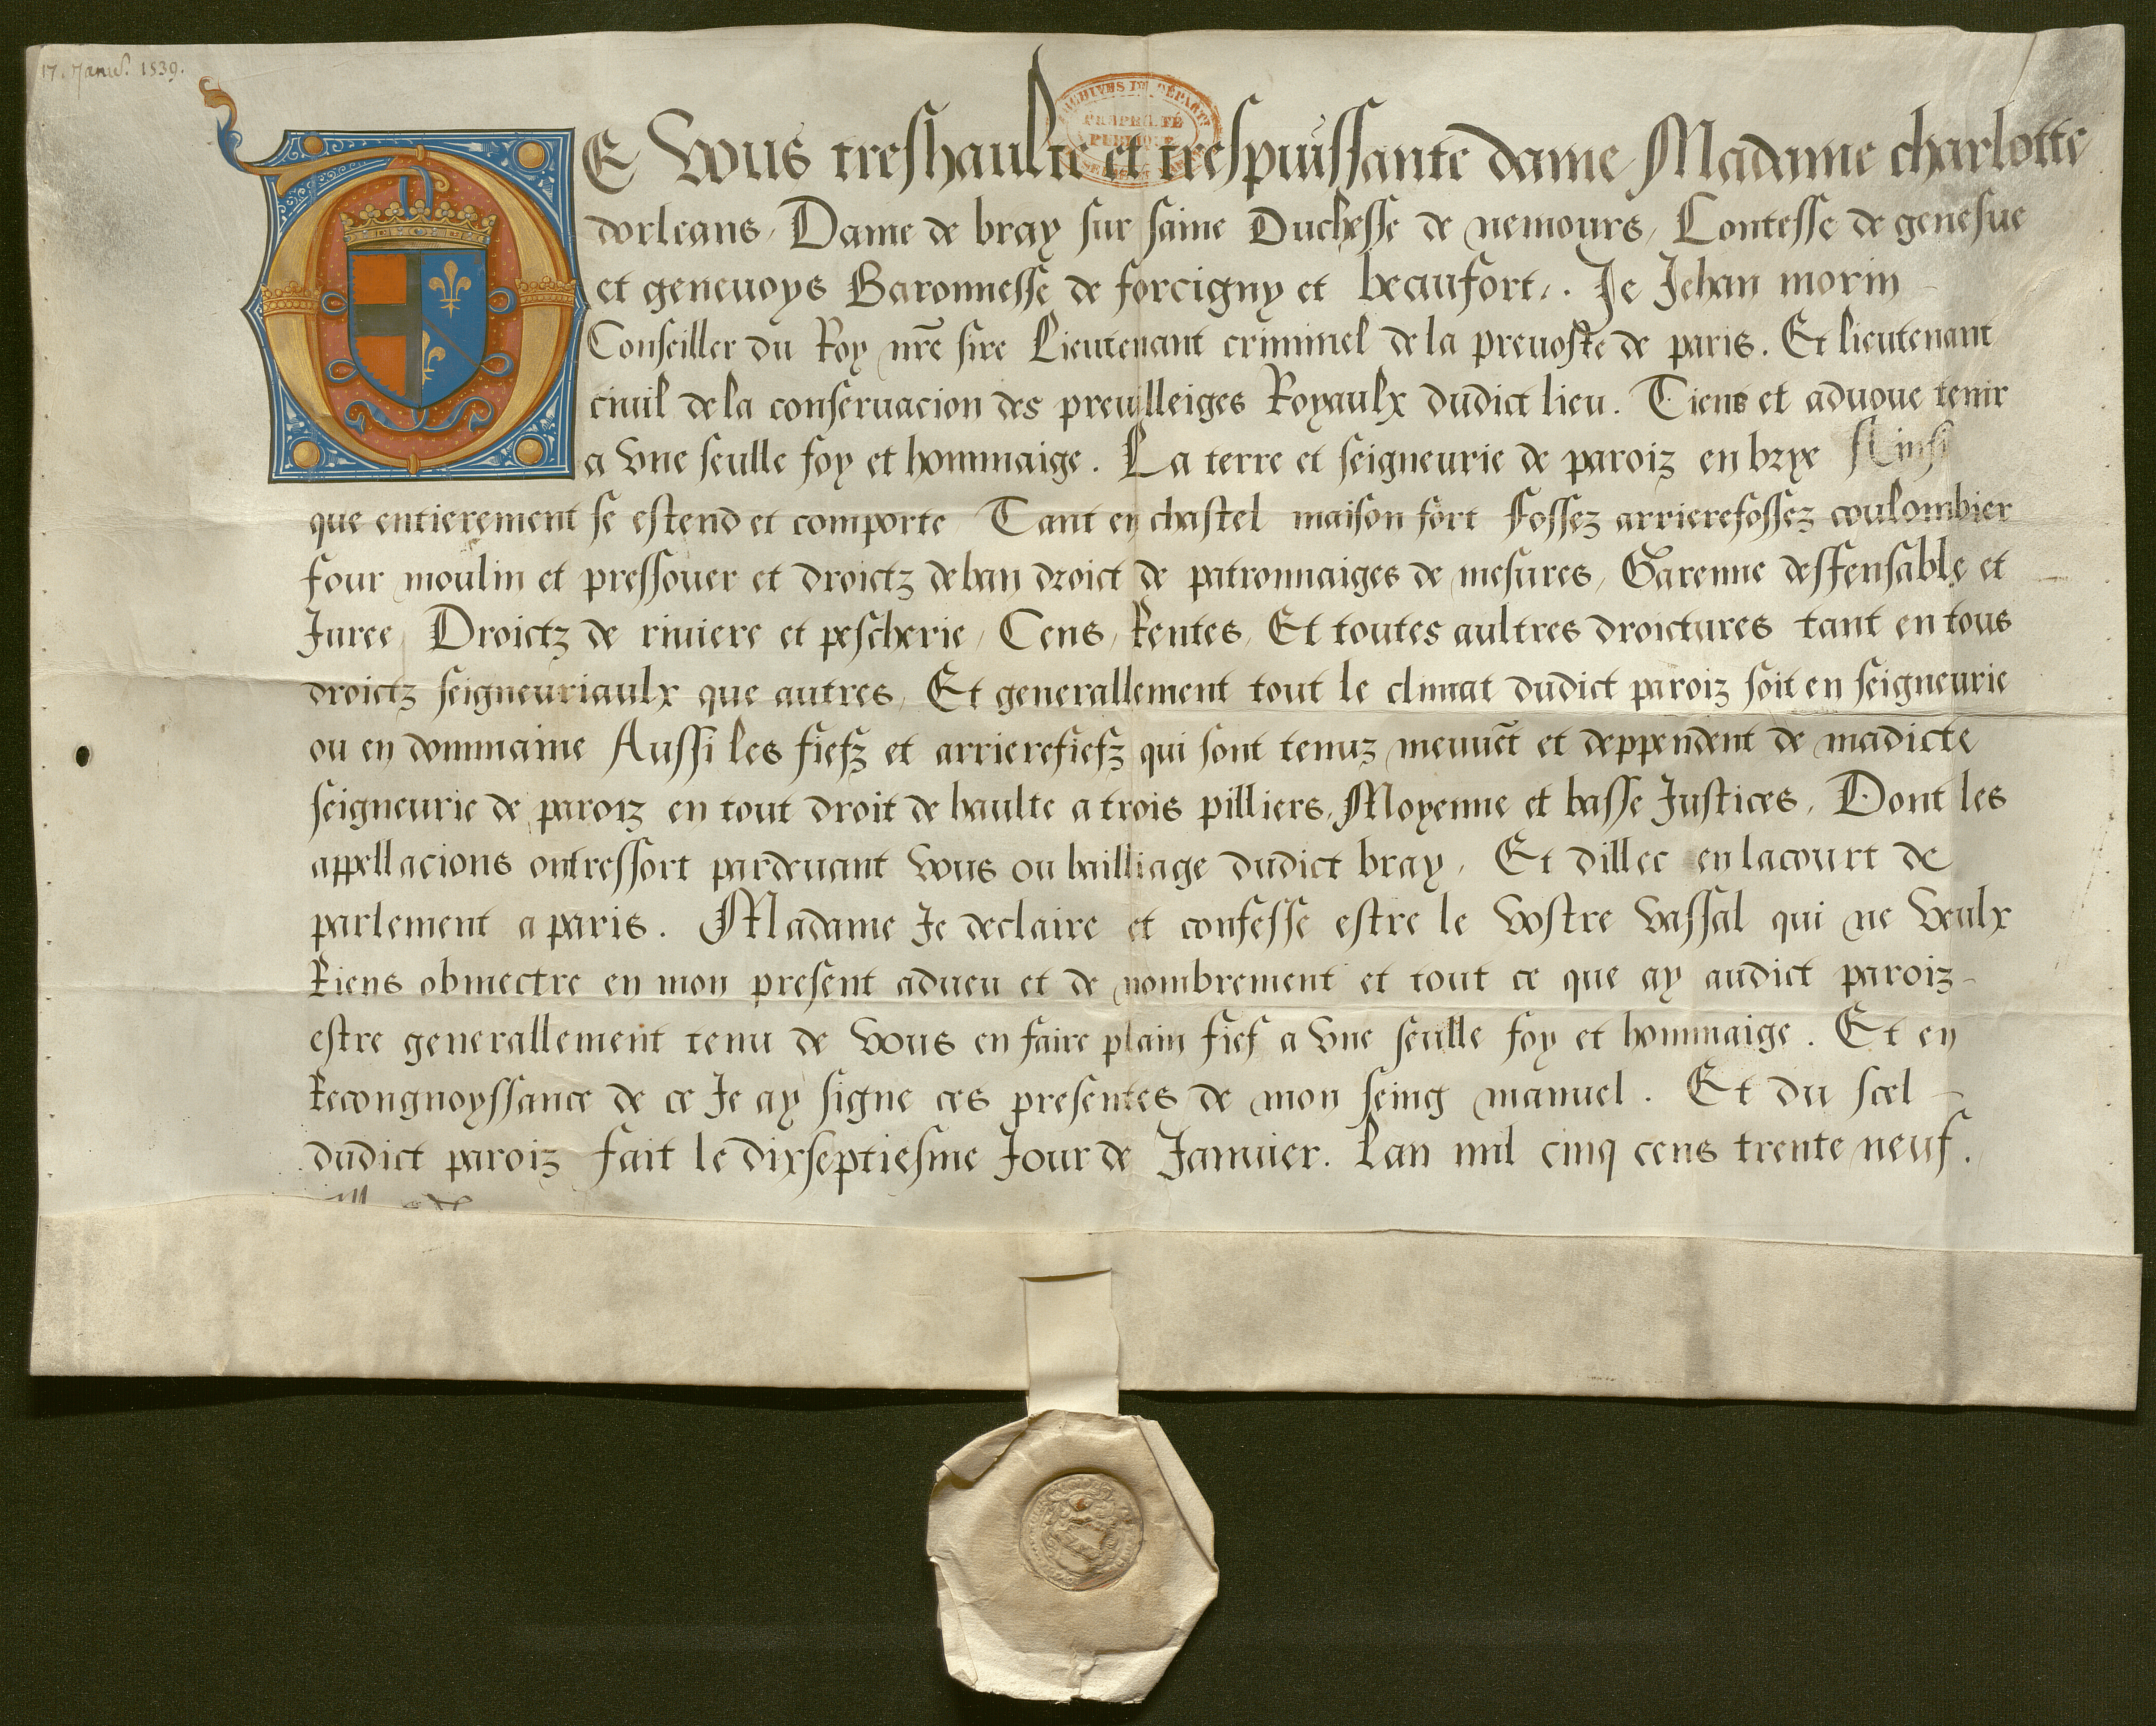 17. Janv. 1539.
ARCHIVES DU DÉPART
PROPRIÉTÉ
PUBLIQUE
DE Vous treshaulte et trespuissante dame Madame charlotte
dorleans, Dame de bray sur saine Duchesse de nemours, Contesse de genesue
et geneuoys Baronnesse de forcigny et beaufort,. Je Jehan morin
Conseiller du Roy nr̄e sire Lieutenant criminel de la preuoste de paris. Et lieutenant
ciuil de la conseruacion des preuilleiges Royaulx dudict lieu. Tiens et aduoue tenir
a vne seulle foy et hommaige. La terre et seigneurie de paroiz en brye Ainsi
que entierement se estend et comporte Tant en chastel maison fort Fossez arrierefossez coulombier
four moulin et pressouer et droictz de ban droict de patronnaiges de mesures, Garenne deffensable et
Juree, Droictz de riuiere et pescherie, Cens, Rentes, Et toutes aultres droictures tant en tous
droictz seigneuriaulx que autres, Et generallement tout le climat dudict paroiz soit en seigneurie
ou en dommaine Aussi les fiefz et arrierefiefz qui sont tenuz meuuēt et deppendent de madicte
seigneurie de paroiz en tout droit de haulte a trois pilliers, Moyenne et basse Justices, Dont les
appellacions ont ressort pardeuant vous ou bailliage dudict bray, Et dillec en la court de
parlement a paris. Madame Je declaire et confesse estre le vostre vassal qui ne veulx
Riens obmectre en mon present adueu et de nombrement et tout ce que ay audict paroiz
estre generallement tenu de vous en faire plain fief a vne seulle foy et hommaige. Et en
Recongnoyssance de ce Je ay signe ces presentes de mon seing manuel. Et du scel
dudict paroiz fait le dixseptiesme Jour de Januier. Lan mil cinq cens trente neuf.